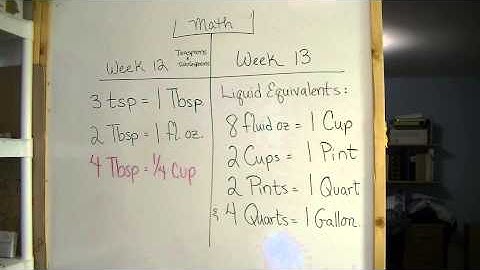 Math
Week 12
Teaspoons
& Tablespoons
3 tsp = 1 Tbsp.
2 Tbsp = 1 fl. oz.
4 Tbsp = 1/4 Cup
Week 13
Liquid Equivalents:
8 fluid oz = 1 Cup
2 Cups = 1 Pint
2 Pints = 1 Quart
& 4 Quarts = 1 Gallon.